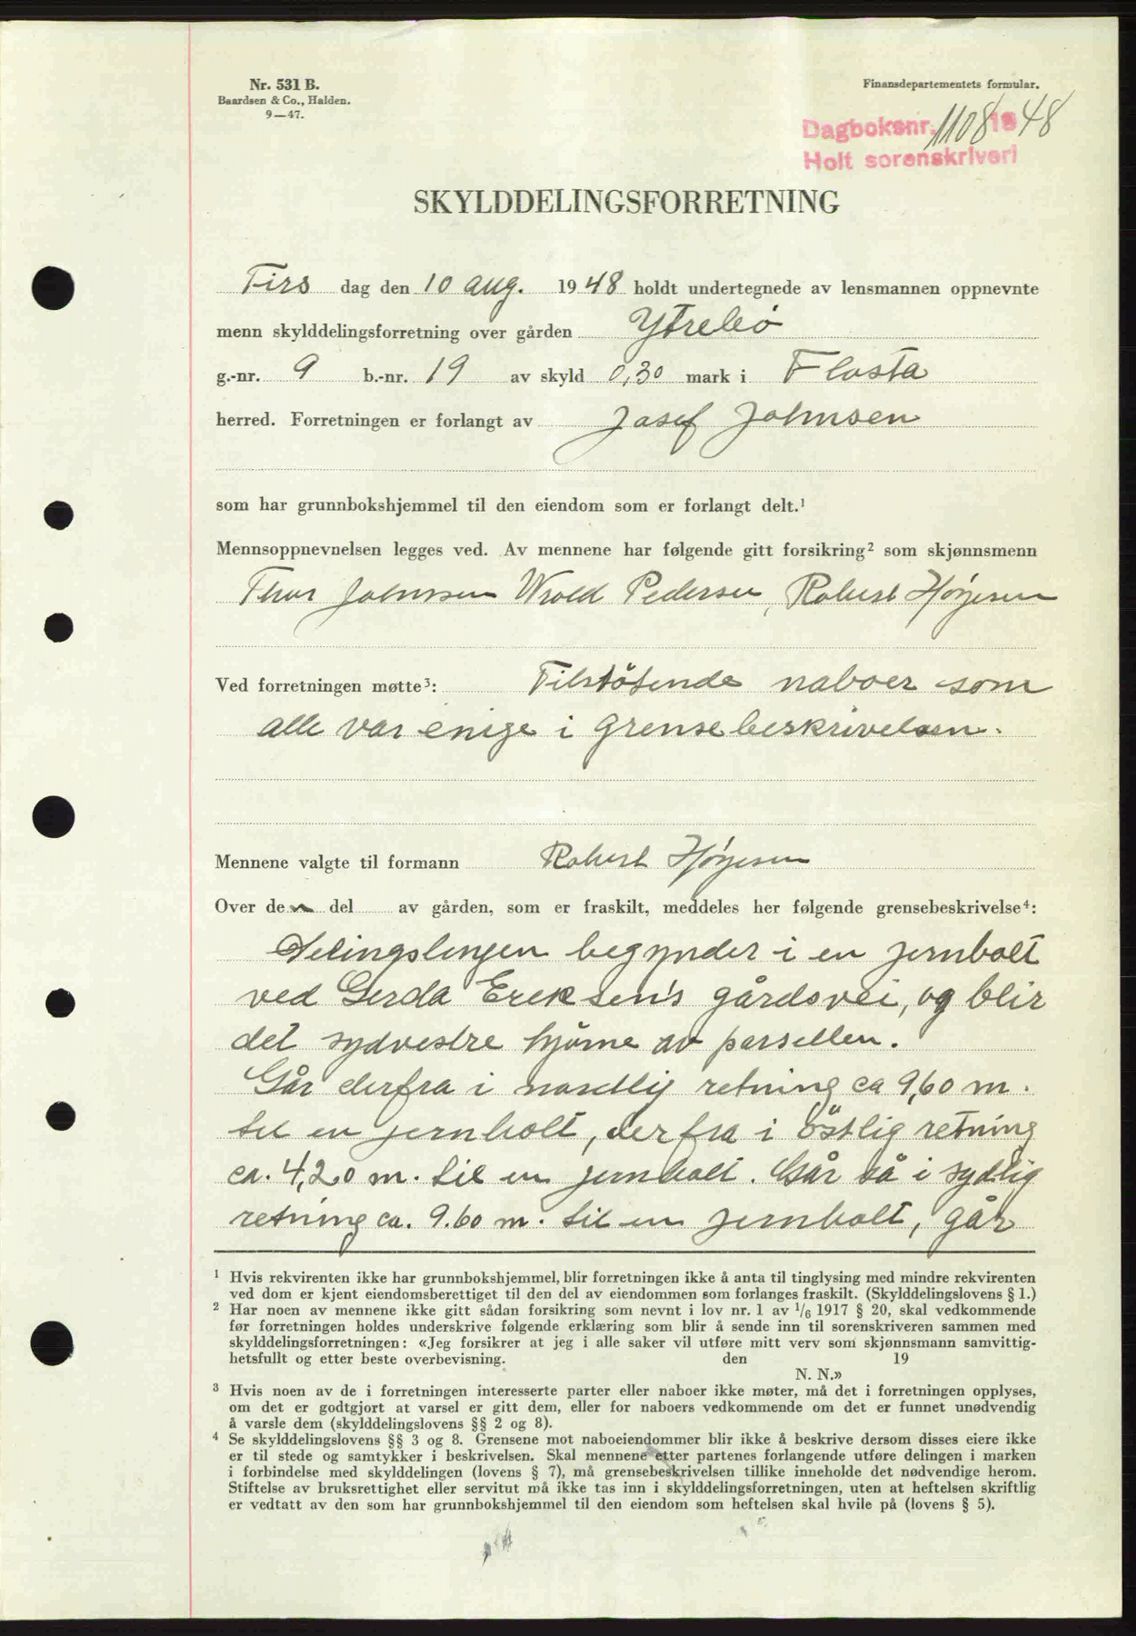 Nr. 531 B.
Baardsen & Co., Halden.
9—47.
Finansdepartementets formular.
Dagboksnr. 1108 1948
Holt sorenskriveri
SKYLDDELINGSFORRETNING
Tirs dag den 10 aug. 1948 holdt undertegnede av lensmannen oppnevnte
menn skylddelingsforretning over gården Ytrebø
g.-nr. 9 b.-nr. 19 av skyld 0,30 mark i Flosta
herred. Forretningen er forlangt av Josef Johnsen
som har grunnbokshjemmel til den eiendom som er forlangt delt.¹
Mennsoppnevnelsen legges ved. Av mennene har følgende gitt forsikring² som skjønnsmenn
Thor Johnsen Wrold Pedersen, Robert Hørjesen
Ved forretningen møtte³: Tilstötende naboer som
alle var enige i grensebeskrivelsen.
Mennene valgte til formann Robert Hørjesen
Over den del av gården, som er fraskilt, meddeles her følgende grensebeskrivelse⁴:
Delingslinjen begynder i en jernbolt
ved Gerda Ereksen's gårdsvei, og blir
det sydvestre hjørne av parsellen.
Går derfra i nordlig retning ca 9,60 m.
til en jernbolt, derfra i östlig retning
ca. 4,20 m. til en jernbolt. Går så i sydlig
retning ca. 9.60 m. til en jernbolt, går
¹ Hvis rekvirenten ikke har grunnbokshjemmel, blir forretningen ikke å anta til tinglysing med mindre rekvirenten
ved dom er kjent eiendomsberettiget til den del av eiendommen som forlanges fraskilt. (Skylddelingslovens § 1.)
² Har noen av mennene ikke gitt sådan forsikring som nevnt i lov nr. 1 av 1/6 1917 § 20, skal vedkommende
før forretningen holdes underskrive følgende erklæring som blir å sende inn til sorenskriveren sammen med
skylddelingsforretningen: «Jeg forsikrer at jeg i alle saker vil utføre mitt verv som skjønnsmann samvittig-
hetsfullt og etter beste overbevisning. den 19
N. N.»
³ Hvis noen av de i forretningen interesserte parter eller naboer ikke møter, må det i forretningen opplyses,
om det er godtgjort at varsel er gitt dem, eller for naboers vedkommende om det er funnet unødvendig
å varsle dem (skylddelingslovens §§ 2 og 8).
⁴ Se skylddelingslovens §§ 3 og 8. Grensene mot naboeiendommer blir ikke å beskrive dersom disses eiere ikke
er til stede og samtykker i beskrivelsen. Skal mennene etter partenes forlangende utføre delingen i marken
i forbindelse med skylddelingen (lovens § 7), må grensebeskrivelsen tillike inneholde det nødvendige herom.
Stiftelse av bruksrettighet eller servitut må ikke tas inn i skylddelingsforretningen, uten at heftelsen skriftlig
er vedtatt av den som har grunnbokshjemmel til den eiendom som heftelsen skal hvile på (lovens § 5).